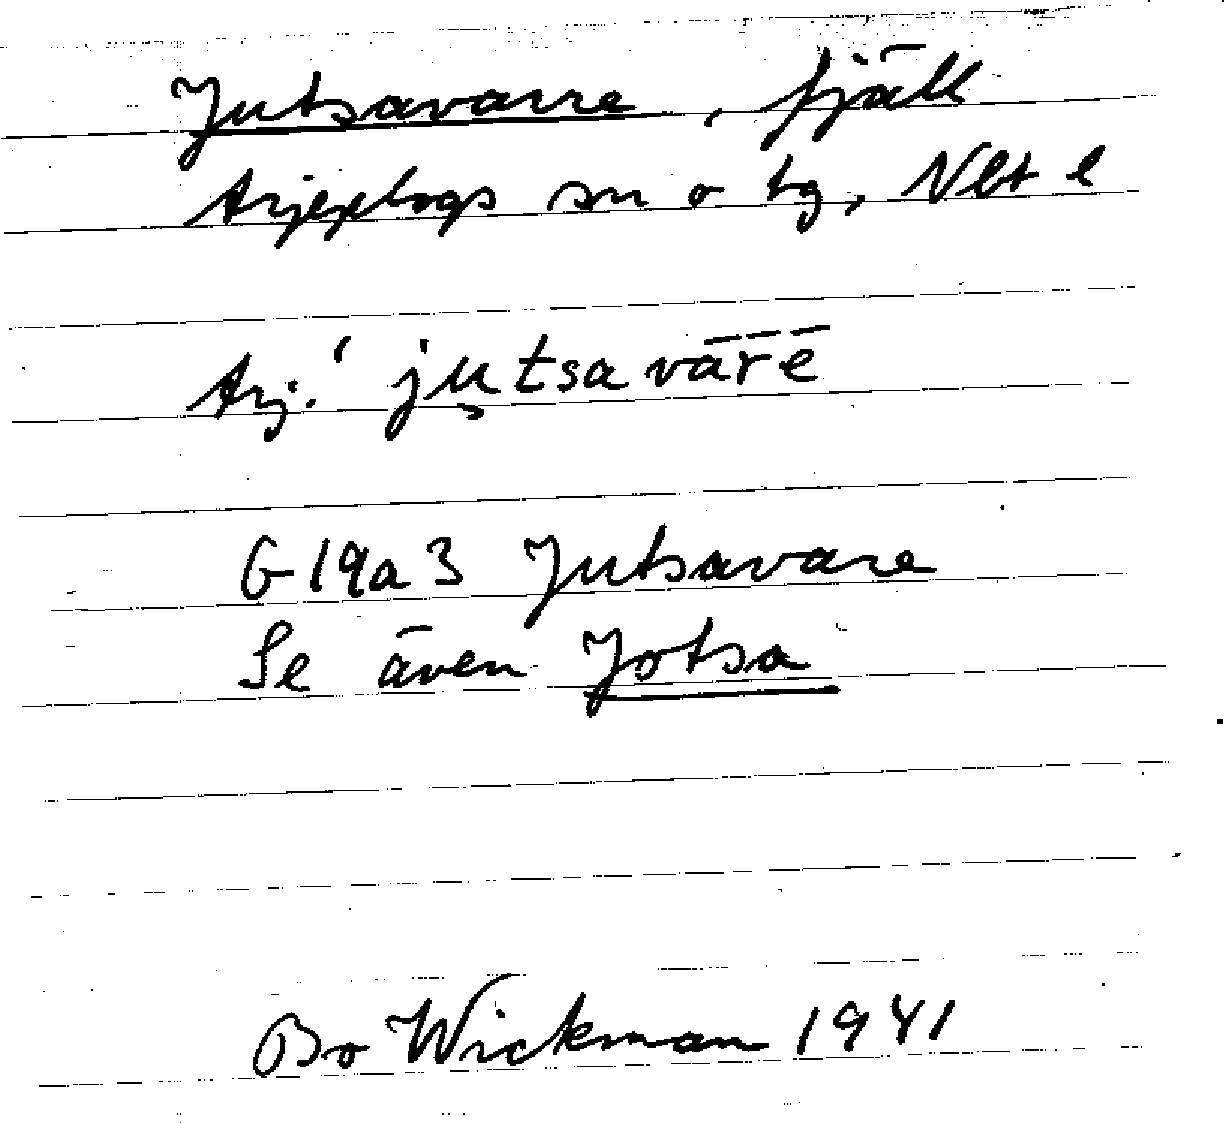 Jutsavarre, fjäll
Arjeplogs sn o tg, Nbt l
Arj. ' ju̡tsa vārē
G19a3 Jutsavare
Se även Jotsa
Bo Wickman 1941